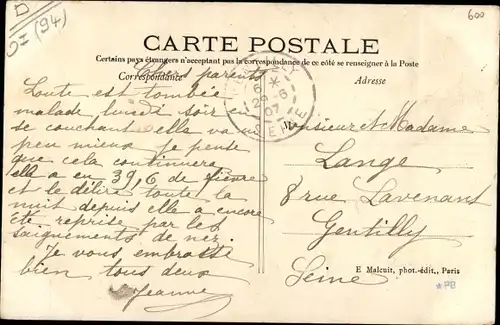 D
SH (94)
600
CARTE POSTALE
Certains pays étrangers n'acceptant pas la correspondance de ce côté se renseigner à la Poste
Correspondance
Adresse
Chers parents
Loute est tombée
malade lundi soir en
se couchant elle va un
peu mieux je pense
que cela continuera
elle a en 39,6 de fièvre
et le délire toute la
nuit depuis elle a encore
été reprise par les
saignements de nez.
Je vous embrasse
bien tous deux
Jeanne
6 *
26-6
07
Monsieur et Madame
Lange
8 rue Lavenant
Gentilly
Seine
E Malcuit, phot.-édit., Paris
*PB